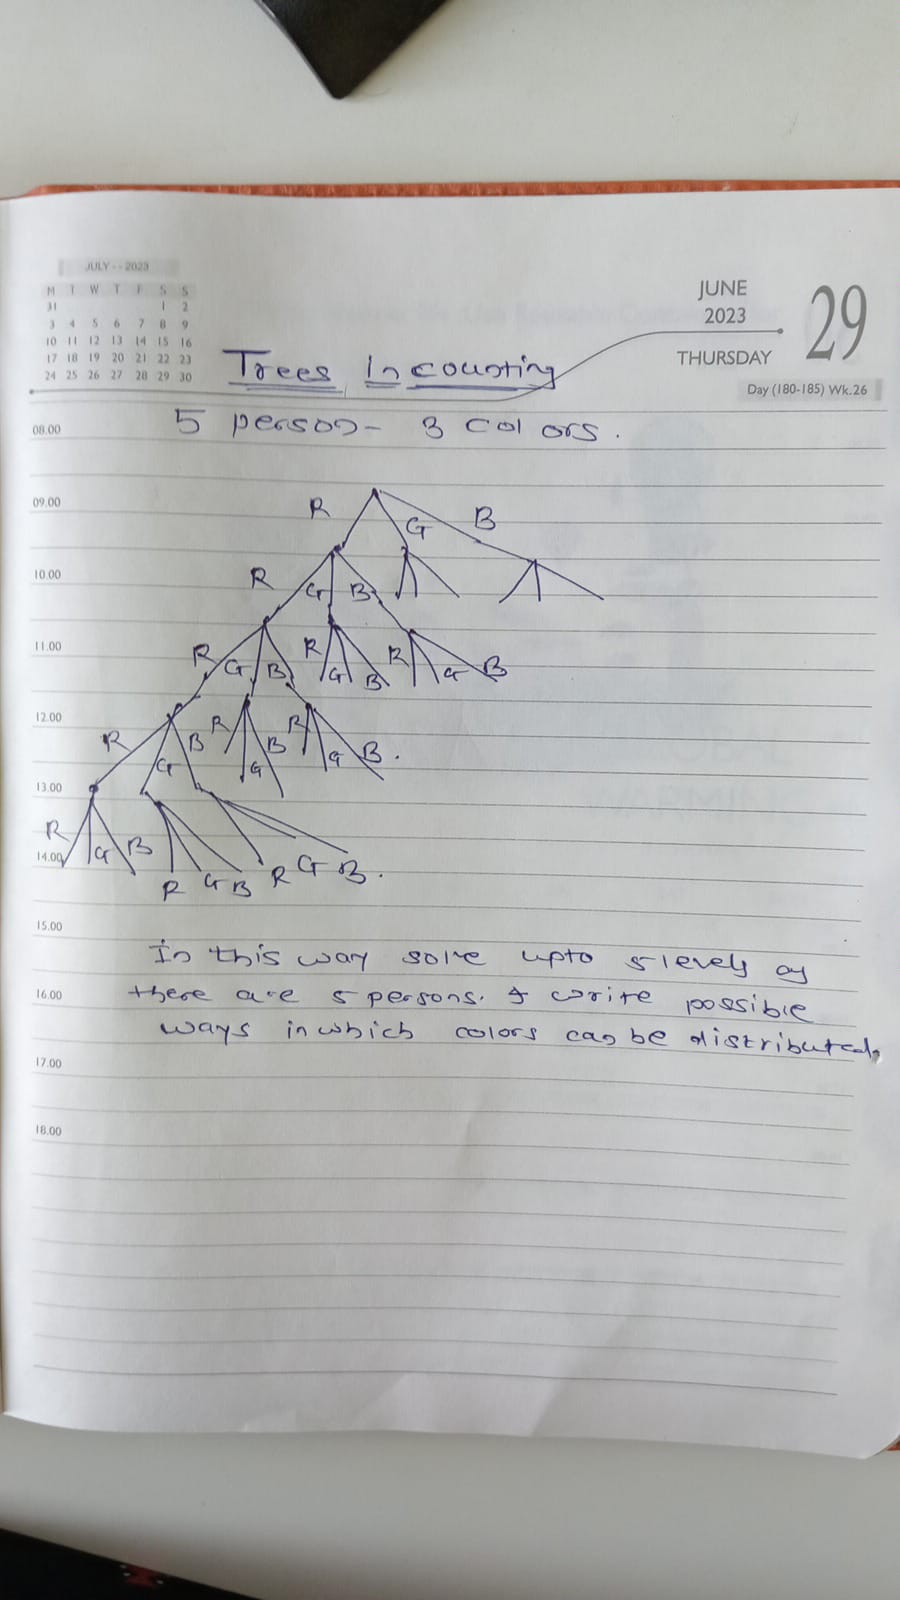 JULY - - 2023
M T W T F S S
31 1 2
3 4 5 6 7 8 9
10 11 12 13 14 15 16
17 18 19 20 21 22 23
24 25 26 27 28 29 30
JUNE
2023
THURSDAY
29
Day (180-185) Wk.26
Trees in counting
08.00 5 person - 3 colors.
09.00
R G B
10.00
R G B
11.00
R G B R G B R G B
12.00
R G B R G B R G B.
13.00
R G B
14.00
R G B R G B.
15.00
In this way solve upto 5 levels as
16.00 there are 5 persons. & write possible
ways in which colors can be distributed,
17.00
18.00